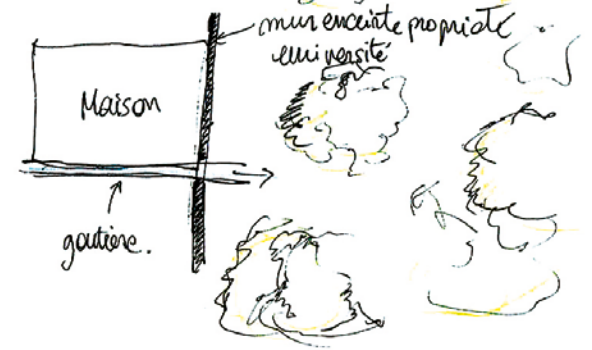 mur enceinte propriété
université
Maison
goutière.